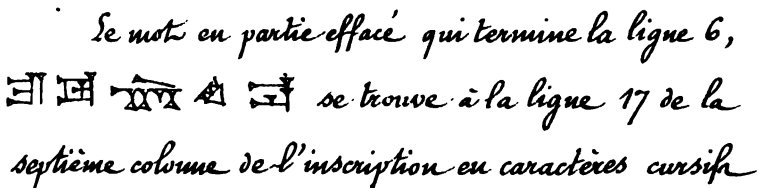 Le mot en partie effacé qui termine la ligne 6,
se trouve à la ligne 17 de la
septième colonne de l'inscription en caractères cursifs